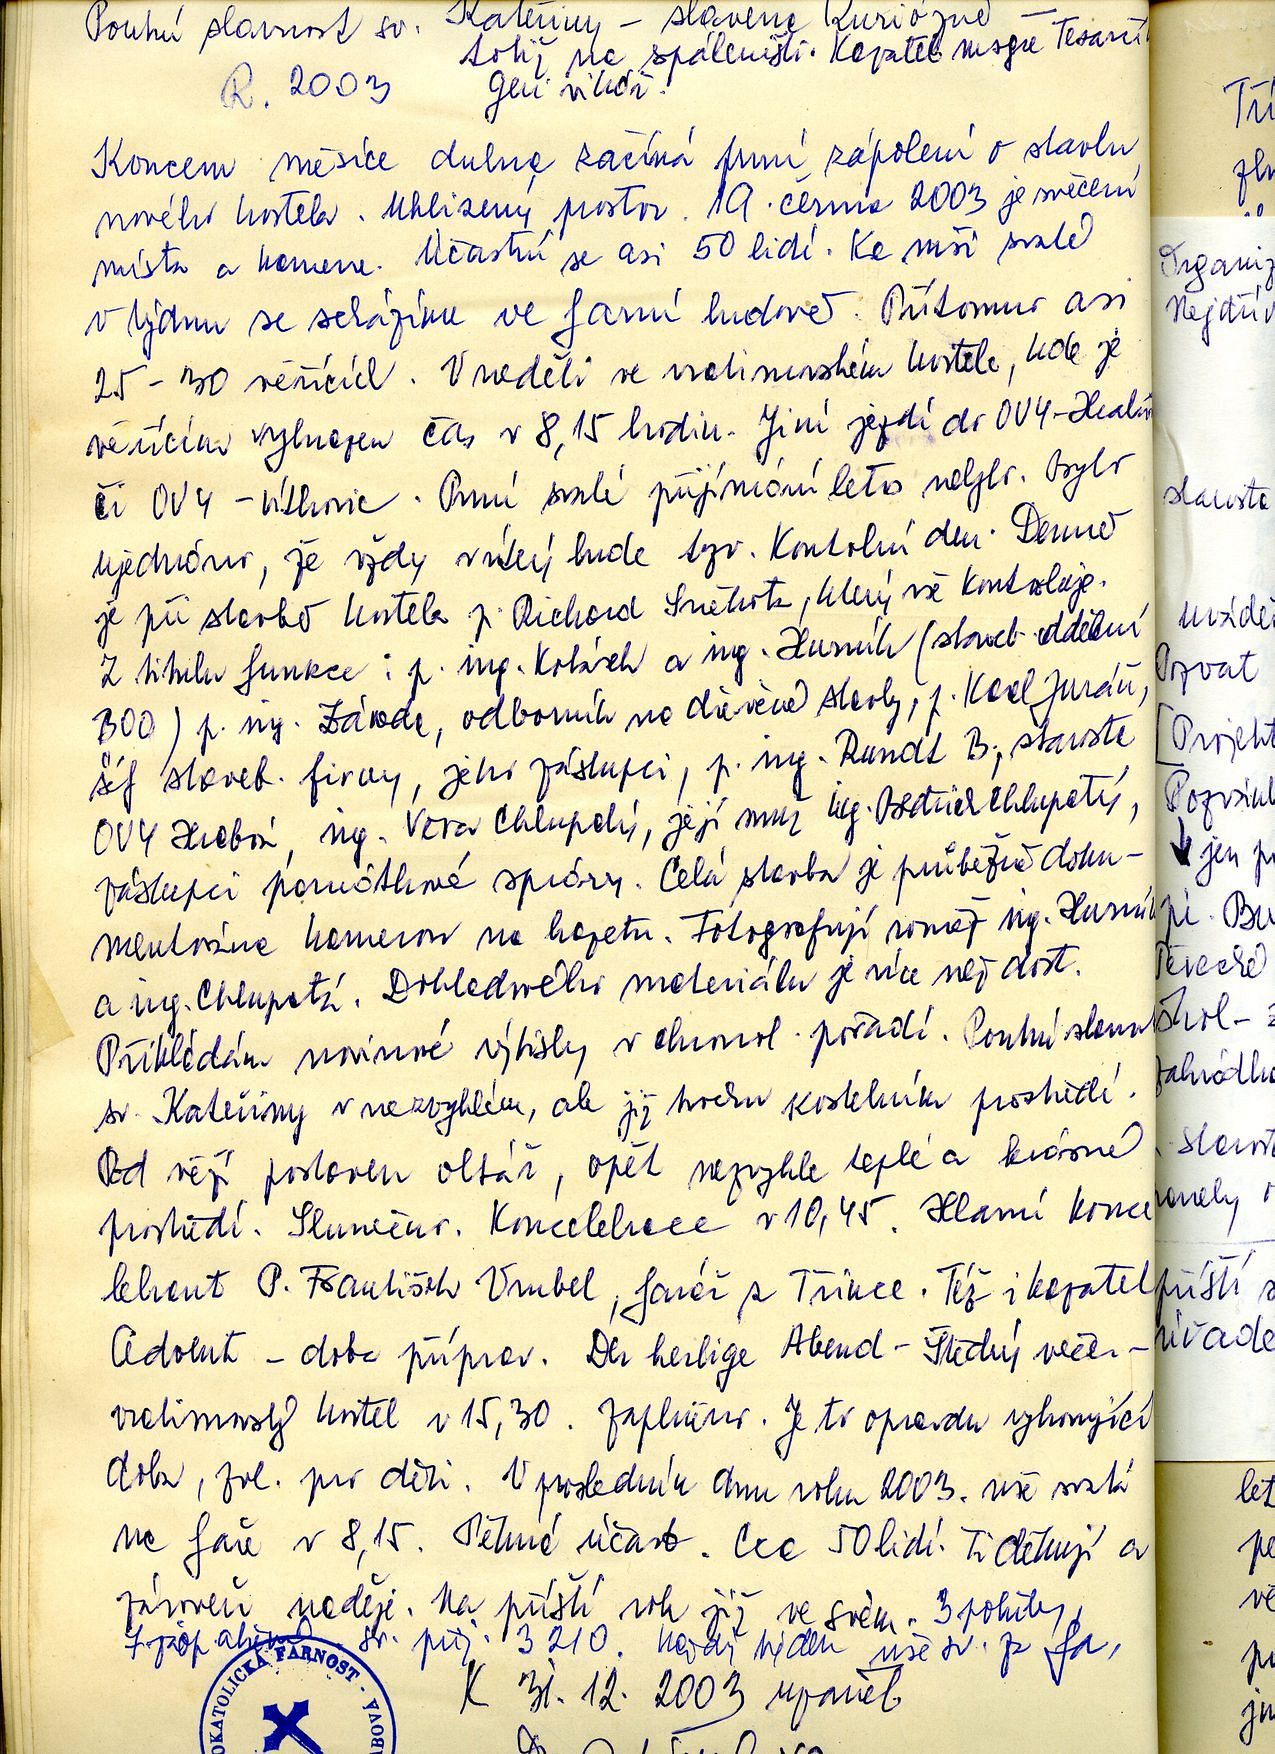 Poutní slavnost sv. Kateřiny – slavena kuriózně –
totiž na spáleništi. Kazatel msgre Tesarčík
gen. vikář.
R. 2003
Koncem měsíce dubna začíná první zápolení o stavbu
nového kostela. Uklizený prostor. 19. června 2003 je svěcení
místa a kamene. Účastní se asi 50 lidí. Ke mši svaté
v týdnu se scházíme ve farní budově. Přítomno asi
25 – 30 věřících. V neděli ve vratimovském kostele, kde je
věřícím vyhrazen čas v 8,15 hodin. Jiní jezdí do OV4-Hrabů
či OV4 – Vítkovic. První svaté přijímání letos nebylo. Bylo
ujednáno, že vždy v úterý bude tzv. Kontrolní den. Denně
je při stavbě kostela p. Richard Sněhota, který vše kontroluje.
Z titulu funkce: p. ing. Kolásek a ing. Hurník (staveb. oddělení
BOO) p. ing. Závada, odborník na dřevěné stavby, p. Karel Juráň,
šéf staveb. firmy, jeho zástupci, p. ing. Rundt B., starosta
OV4 Hrabová, ing. Věra Chlupatá, její muž ing. Bedřich Chlupatý,
zástupci památkové správy. Celá stavba je průběžně doku-
mentována kamerou na kazetu. Fotografují rovněž ing. Hurník
a ing. Chlupatá. Dohledového materiálu je více než dost.
Přikládám novinové výtisky v chronol. pořadí. Poutní slavnost
sv. Kateřiny v nezvyklém, ale již trochu kostelním prostředí.
Pod věží postaven oltář, opět nezvykle teplé a krásné
prostředí. Slunečno. Koncelebrace v 10,45. Hlavní konce
lebrant P. František Vrubel, farář z Třince. Též i kazatel
Advent – doba příprav. Der heilige Abend – Štědrý večer –
vratimovský kostel v 15,30. Zaplněno. Je to opravdu vyhovující
doba, zvl. pro děti. V posledním dnu roku 2003. mše svatá
na faře v 8,15. Pěkná účast. Cca 50 lidí. Ti děkují a
zároveň naděje. Na příští rok již ve svém. 3 pohřby,
sv. přij. 3210. každý týden mše sv. za fa,
K 31. 12. 2003 uzavřel
OKATOLICKÁ FARNOST
Organiz
Nejdřív
starosta
Pozvat
[Projekt
jen
zahrádka
příští